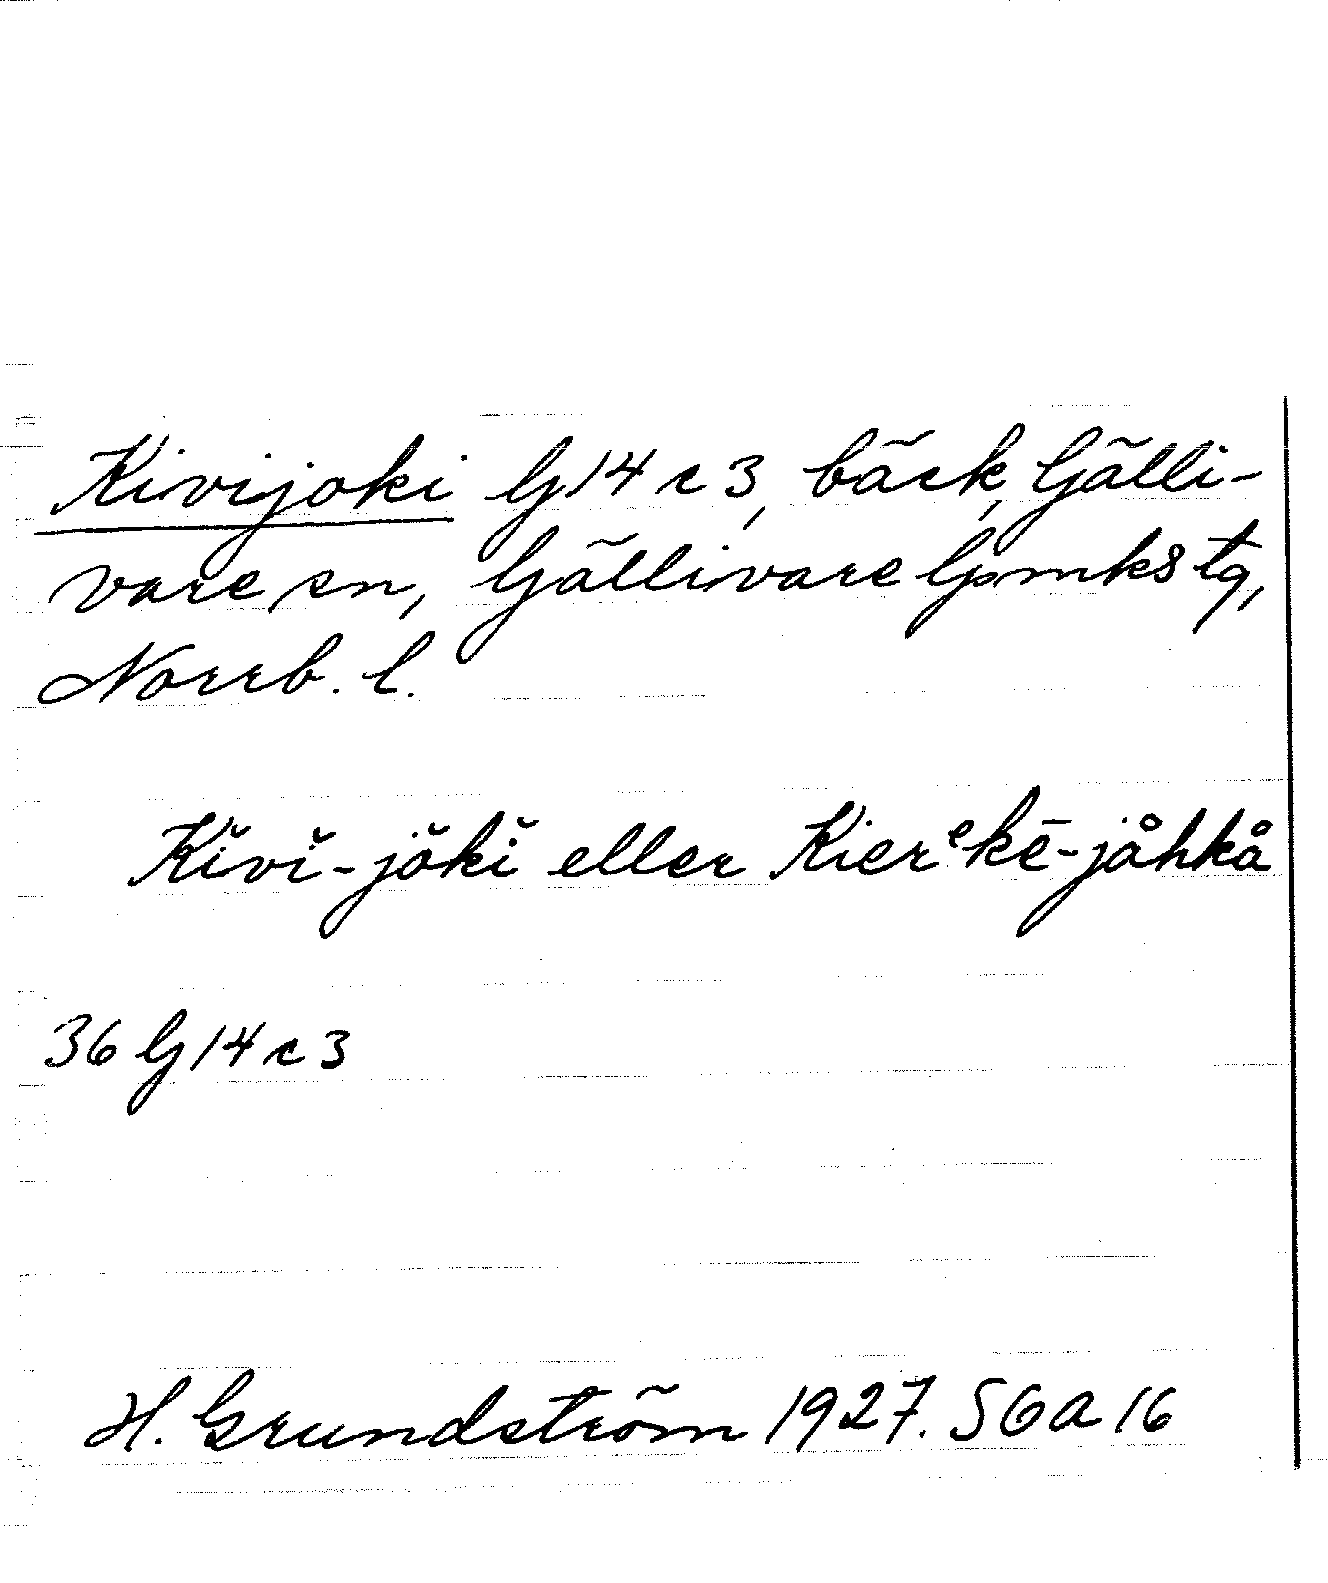 Kivijoki G14 c 3, bäck, Gälli-
vare sn, Gällivare lpmks tg,
Norrb. l.
Kĭvĭ-jŏkĭ eller Kierᵉkē-jåhkå
36 G 14 c 3
H. Grundström 1927. SGA 16